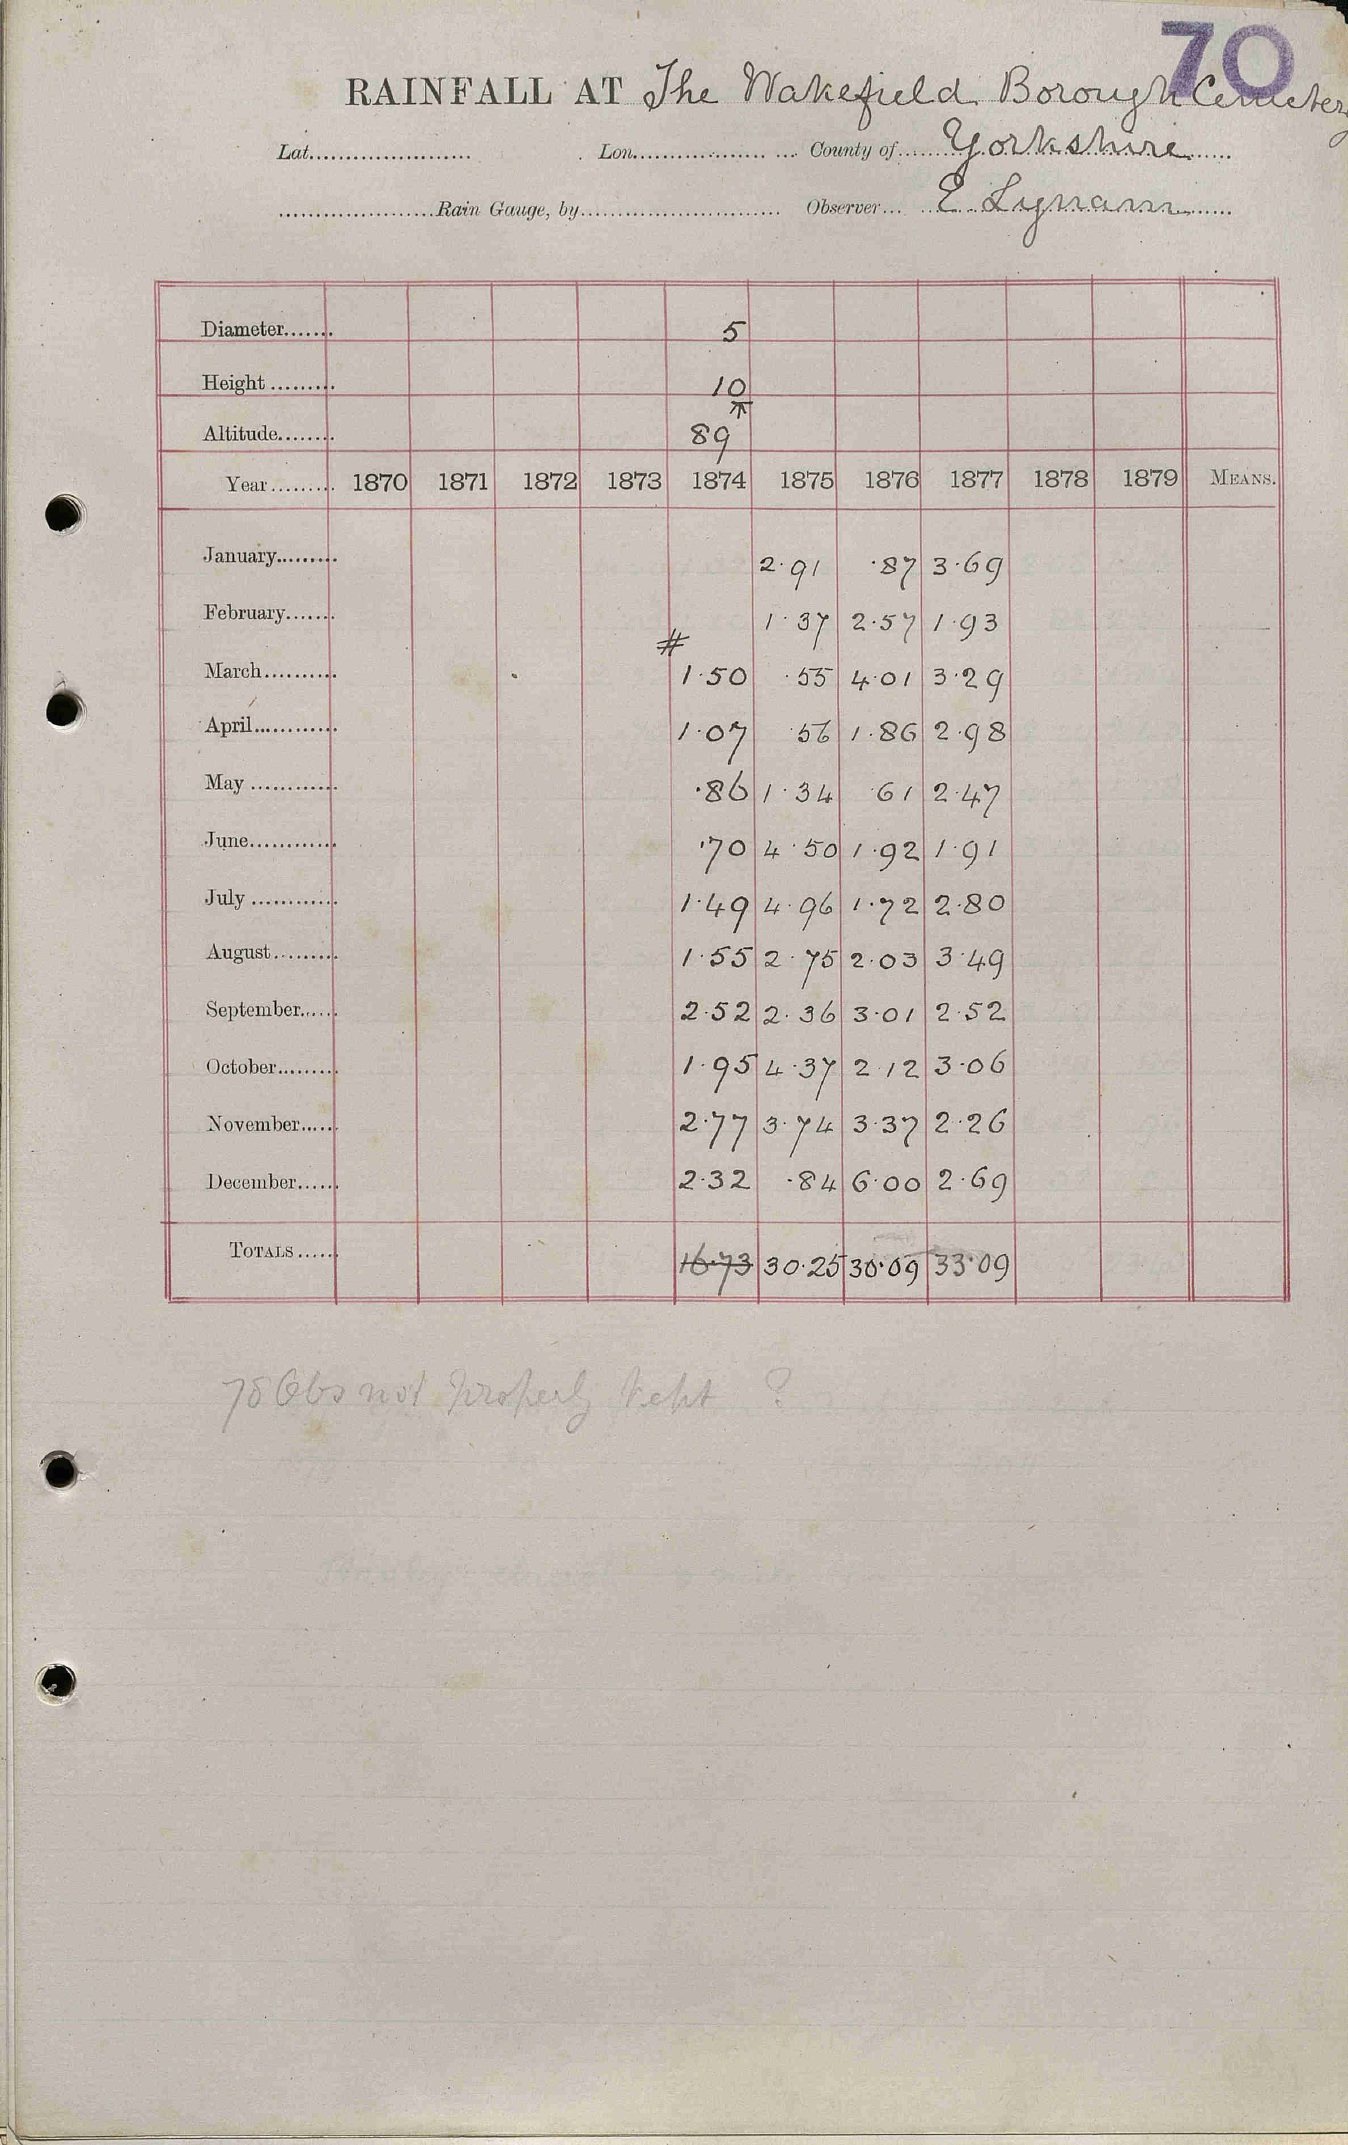 70
RAINFALL AT The Wakefield Borough Cemetery
Lat. Lon. County of Yorkshire
Rain Gauge, by Observer E Lynam
Diameter 5
Height 10
Altitude 89
Year 1870 1871 1872 1873 1874 1875 1876 1877 1878 1879 MEANS.
January 2.91 .87 3.69
February 1.37 2.57 1.93
#
March 1.50 .55 4.01 3.29
April 1.07 .56 1.86 2.98
May .86 1.34 .61 2.47
June .70 4.50 1.92 1.91
July 1.49 4.96 1.72 2.80
August 1.55 2.75 2.03 3.49
September 2.52 2.36 3.01 2.52
October 1.95 4.37 2.12 3.06
November 2.77 3.74 3.37 2.26
December 2.32 .84 6.00 2.69
TOTALS 16.73 30.25 30.09 33.09
78 Obs not properly kept ?